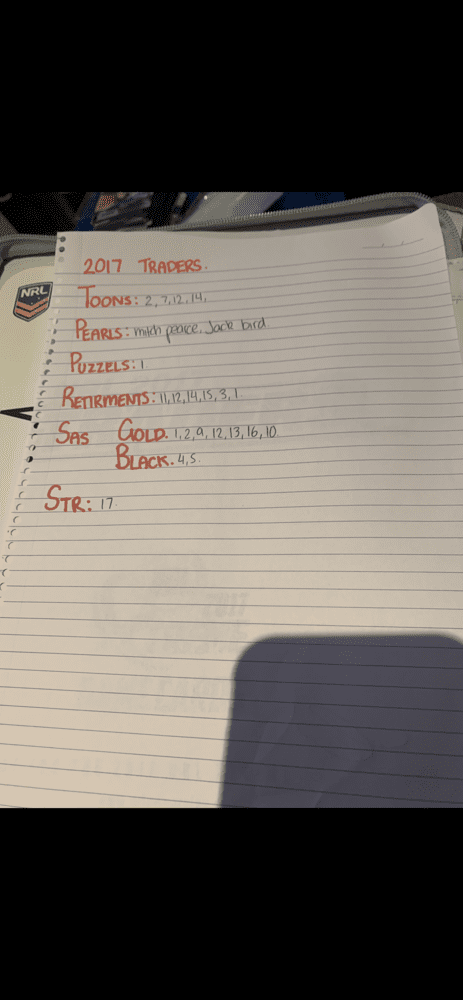 NRL
2017 TRADERS.
TOONS: 2, 7, 12, 14,
PEARLS: mitch pearce. Jack bird.
PUZZELS: 1
RETIRMENTS: 11, 12, 14, 15, 3, 1
SAS GOLD. 1, 2, 9, 12, 13, 16, 10
BLACK. 4, 5
STR: 17.